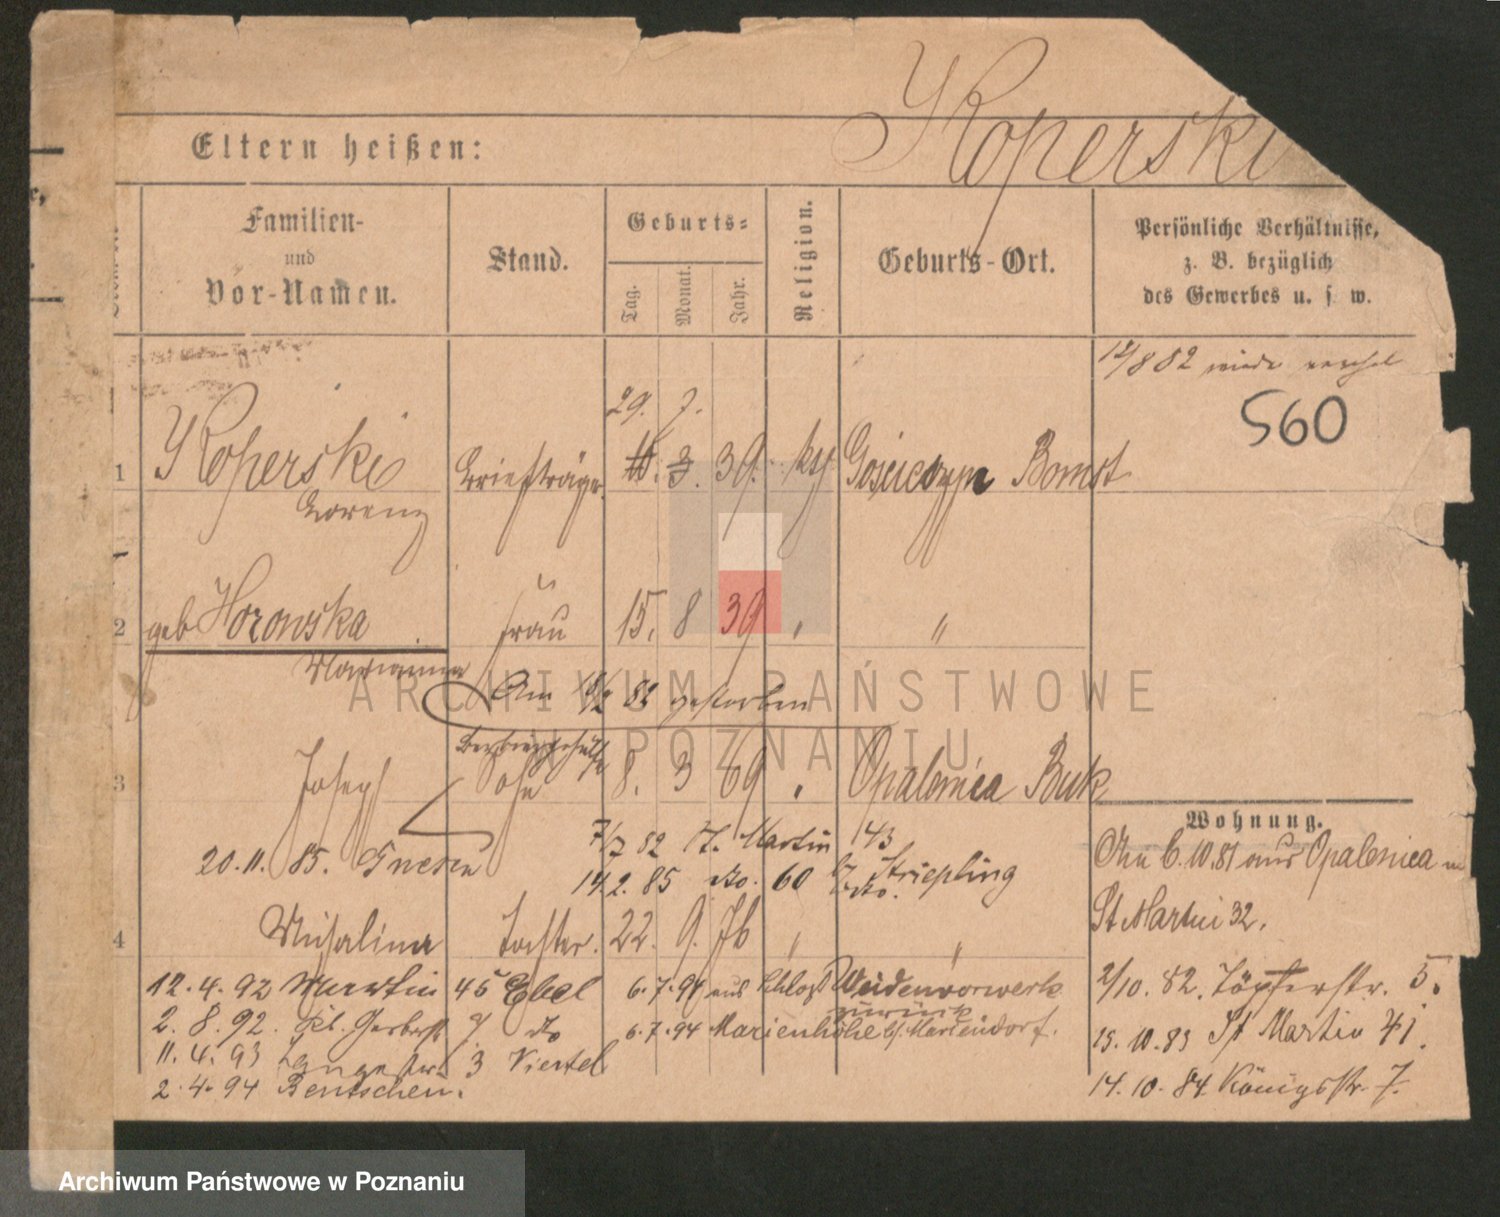 Koperski
Eltern heißen:
Familien-
und
Vor-Namen.
Stand.
Geburts-
Tag.
Monat.
Jahr.
Religion.
Geburts-Ort.
Persönliche Verhältnisse,
z. B. bezüglich
des Gewerbes u. s. w.
8 82 wurde
560
29. 7.
1 Koperski Briefträger 3. 39. Bomst
Lorenz
2 geb Horowska Frau 15. 8 39 " "
Marianna
Am 82 gestorben
3 Joseph Sohn 8. 3 69 " Opalenica Buk
Wohnung.
7/7 82 St. Martin 43
20. 11. 85. Gnesen
14. 2. 85 do. 60 b/ Striepling
Am 6. 10. 81 aus Opalenica
St Martin 32.
4 Tochter. 22. 9. 76 " "
12. 4. 92 Martin 45 Ebel
6. 7. 94 aus Schloß Weidenvorwerk
zurück
2/10. 82. Töpferstr. 5.
2. 8. 92. Kl. Gerberst 9 do
6. 7. 94 Marienhöhe b/ Mariendorf.
15. 10. 83 St Martin 41.
11. 4. 93 Langestr. 3 Viertel
2. 4. 94 Bentschen.
14. 10. 84 Königsstr. 7.
ARCHIWUM PAŃSTWOWE
W POZNANIU
Archiwum Państwowe w Poznaniu